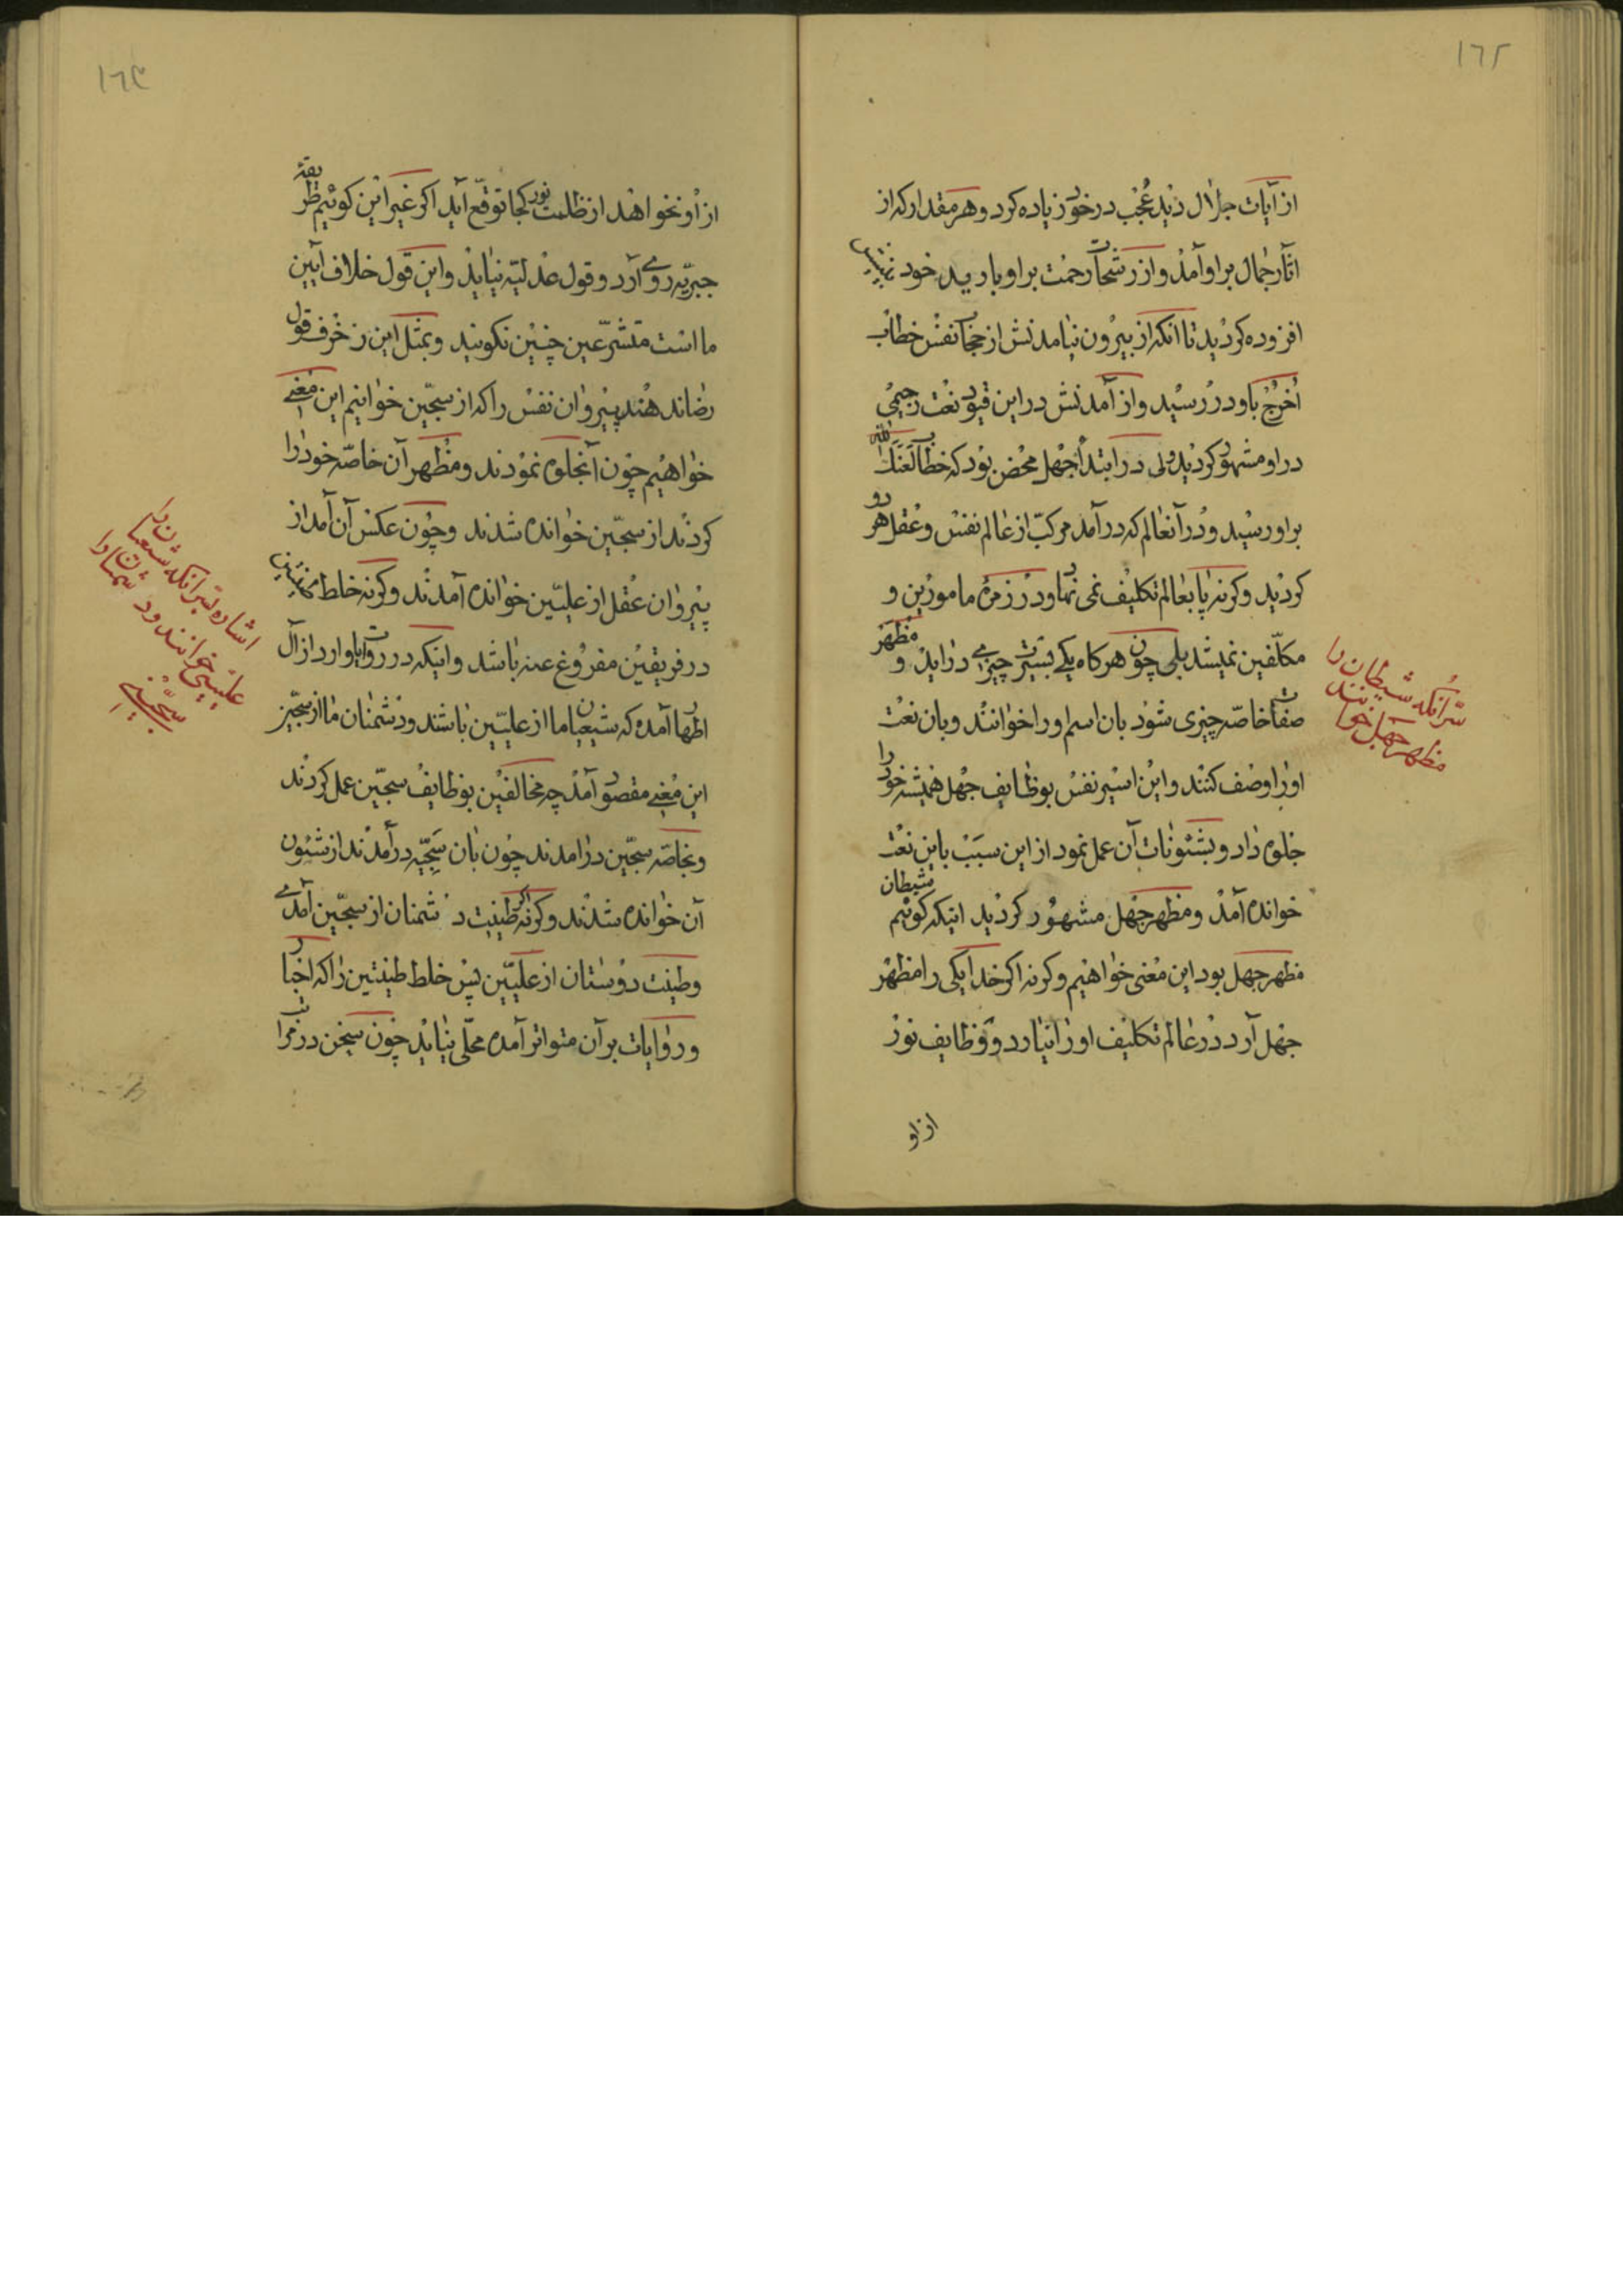 ١٦٢
از آیات جلال دید عُجب در خود زیاده کرد و هر مقدار که از
اثار جمال بر او آمد و از رشحات رحمت بر او بارید خود بینیش
افزوده کردید تا انکه از بیرون نیامدنش از حجاب نفس خطاب
اُخرُج باو در رسید و از آمدنش در این قیود نعت رجیمی
در او مشهود کردید ولی در ابتدا جهل محض نبود که خطاب لَعَنَكَ الله
بر او رسید و در آنعالم که در آمد مرکب از عالم نفس و عقل هر دو
کردید و کرنه پا بعالم تکلیف نمی نهاد و در زمره مامورین و
مکلّفین نمیشد بلی چون هرکاه یکی بسیرت چیزی دراید و مظهر
صفات خاصّه چیزی شود بان اسم او را خوانند و بان نعت
او را وصف کنند و این اسیر نفس بوظایف جهل همیشه خود را
جلوه داد و بشئونات آن عمل نمود از این سبب باین نعت
خوانده آمد و مظهر جهل مشهور کردید اینکه کوئیم شیطان
مظهر جهل بود این معنی خواهیم و کرنه اکر خدا یکی را مظهر
جهل آرد در عالم تکلیف او را نیارد و وظایف نور
از او
سرّ انکه شیطان را
مظهر جهل خوانند
١٦٣
از او نخواهد از ظلمت نور کجا توقّع آید اکر غیر این کوئیم طریقهٔ
جبریّه روی آرد و قول عدلیّه نیاید و این قول خلاف آیین
ما است متشرّعین چنین نکویند و بمثل این زخرف قول
رضا ندهند پیروان نفس را که از سجّین خوانیم این معنی
خواهیم چون آنجلوه نمودند و مظهر آن خاصّه خود را
کردند از سجّین خوانده شدند و چون عکس آن آمد از
پیروان عقل از علیّین خوانده آمدند و کرنه خلط طینتین
در فریقین مفروغ عنه باشد و اینکه در روایات وارد از آل
اطهار آمده که شیعیان ما از علیّین باشند و دشمنان ما از سجّین
این معنی مقصود آمد چه مخالفین بوظایف سجّین عمل کردند
و بخاصّه سجّین درامدند چون بان سجیّه درآمدند از شئون
آن خوانده شدند و کرنه اکر طینت دشمنان از سجّین آمدی
و طینت دوستان از علیّین پس خلط طینتین را که اخبار
و روایات بر آن متواتر آمده محلّی نیاید چون سخن در مراتب
اشاره بسرّ انکه شیعیان را
علیینی خوانند و دشمنان را
سجّینی